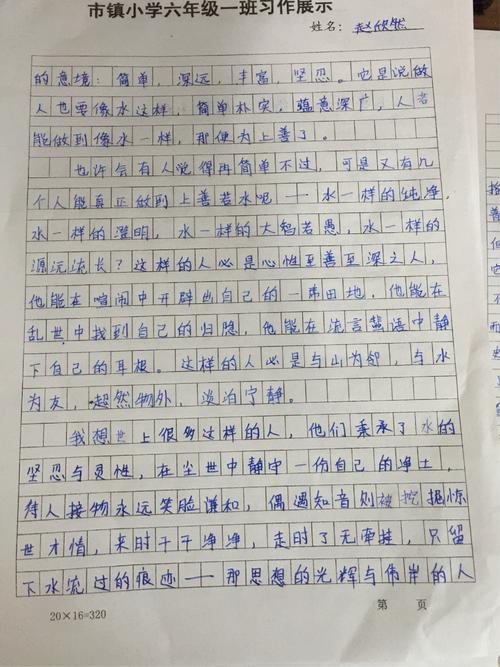 市镇小学六年级一班习作展示
姓名：赵欣然
的意境：简单，深远，丰富，坚忍。也是说做
人也要像水这样，简单朴实，蕴意深广，人若
能做到像水一样，那便为上善了。
也许会有人觉得再简单不过，可是又有几
个人能真正做到上善若水呢——水一样的纯净，
水一样的澄明，水一样的大智若愚，水一样的
源远流长？这样的人必是心性至善至深之人，
他能在喧闹中开辟出自己的一席田地，他能在
乱世中找到自己的归隐，他能在流言蜚语中静
下自己的耳根。这样的人必是与山为邻，与水
为友，超然物外，淡泊宁静。
我想世上很多这样的人，他们秉承了水的
坚忍与灵性，在尘世中静守一份自己的净土，
待人接物永远笑脸谦和，偶遇知音则被挖掘惊
世才情，来时干干净净，走时了无牵挂，只留
下水流过的痕迹——那思想的光辉与伟岸的人
20×16=320
第 页